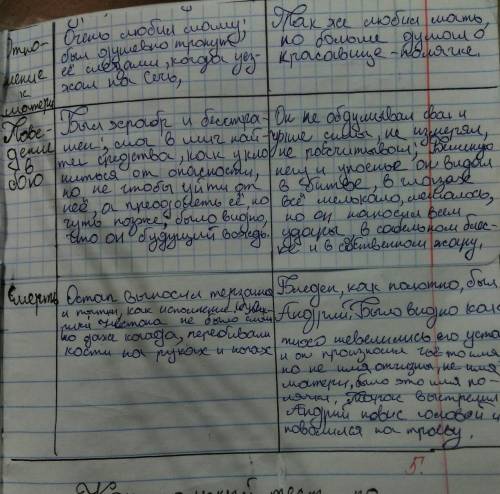 Отно-
шение
к
матери
Очень любил маму;
был душевно тронут
её слезами, когда уез-
жал на Сечь,
Так же любил мать,
но больше думал о
красавице-полячке.
Пове-
дение
в
бою
Был храбр и бесстра-
шен, смог в миг най-
ти средства, как укло
ниться от опасности,
но не чтобы уйти от
неё, а преодолеть её, но
чуть позже, было видно,
что он будущий вождь.
Он не обдумывал свои и
чужие силы, не измерял,
не рассчитывал; Бешеную
негу и упоенье он видел
в битве, в глазах
всё мелькало, металось,
но он наносил всем
удары, в сабельном блес-
ке и в собственном жару.
Смерть
Остап выносил терзания
и пытки, как исполин. Ни
крика ни стона не было слыш
но даже когда, перебивали
кости на руках и ногах
Бледен, как полотно, был
Андрий. Было видно как
тихо шевелились его уста
и он произносил чьё-то имя
но не имя отчизны, не имя
матери, было это имя по-
лячки. Тарас выстрелил
Андрий повис головой и
повалился на траву.
5.